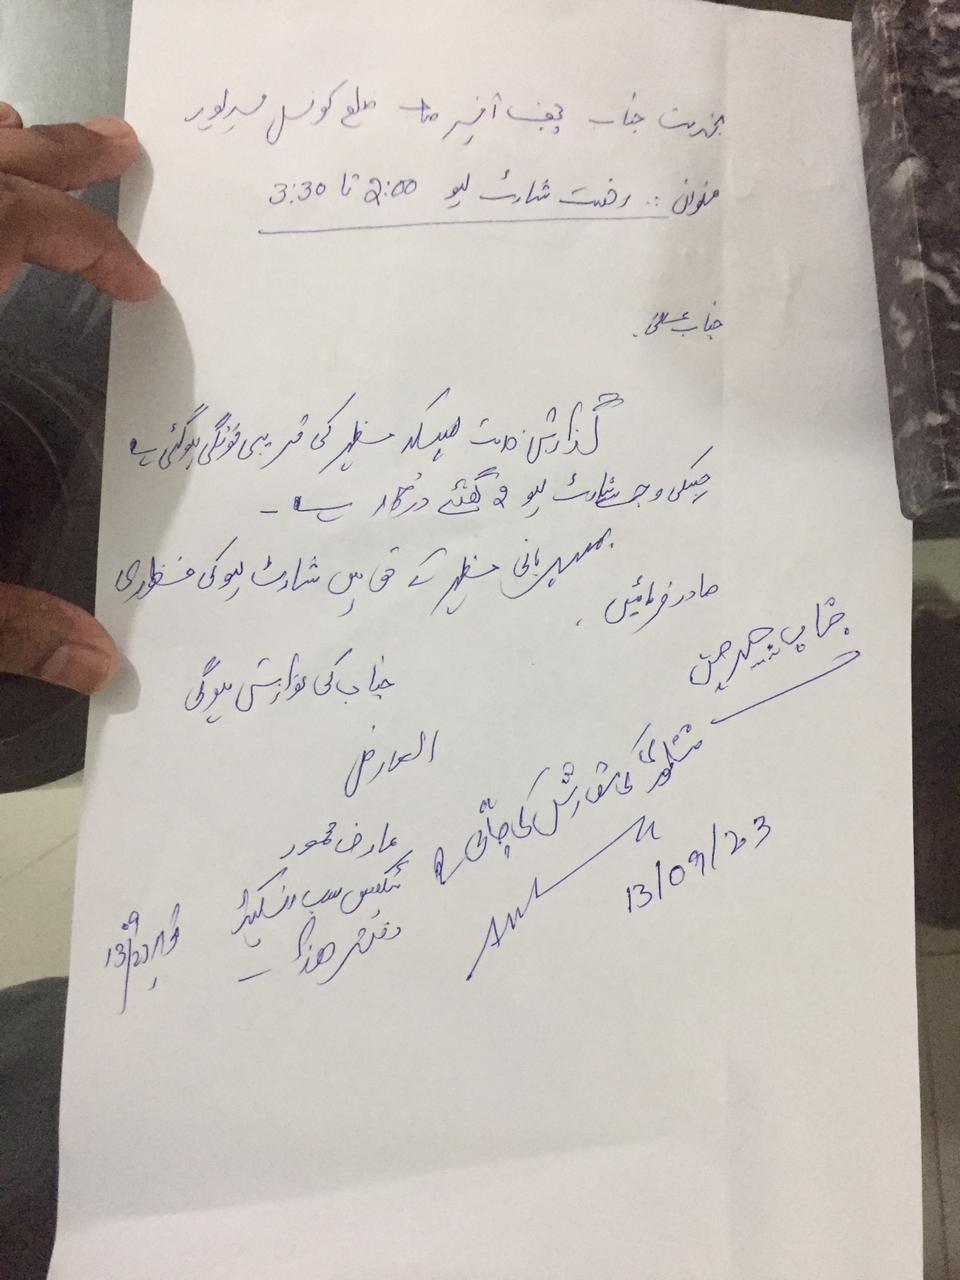 بخدمت جناب چیف آفیسر صاحب ضلع کونسل میرپور
عنوان :. رخصت شارٹ لیو 2:00 تا 3:30
جناب عالی.
گذارش خدمت ہیکہ مظہر کی قریبی فوتگی ہوگئی ہے
جسکی وجہ سے شارٹ لیو 2 گھنٹے درکار ہے -
بمہربانی مظہر کے حق میں شارٹ لیو کی منظوری
صادر فرمائیں .
جناب کی نوازش ہوگی
العارض
عارف محمود
ٹیکس سب انسپکٹر
دفتر ھذا
13/09/23
جناب
منظوری کی سفارش کی جاتی ہے
13/09/23